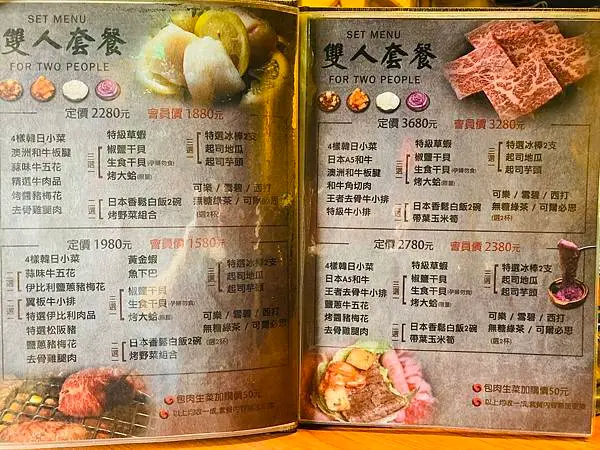 SET MENU
雙人套餐
FOR TWO PEOPLE
定價 2280元 會員價 1880元
4樣韓日小菜
澳洲和牛板腱
蒜味牛五花
精選牛肉品
烤醬豬梅花
去骨雞腿肉
特級草蝦
三選一
椒鹽干貝
生食干貝(孕婦勿食)
烤大蛤(限量)
二選一
日本香鬆白飯2碗
烤野菜組合
三選一
特選冰棒2支
起司地瓜
起司芋頭
可樂 / 雪碧 / 西打
無糖綠茶 / 可爾必思
(選2杯)
定價 1980元 會員價 1580元
4樣韓日小菜
二選一
蒜味牛五花
伊比利鹽蔥豬梅花
二選一
翼板牛小排
特選伊比利肉品
特選松阪豬
鹽蔥豬梅花
去骨雞腿肉
黃金蝦
魚下巴
三選一
椒鹽干貝
生食干貝(孕婦勿食)
烤大蛤(限量)
二選一
日本香鬆白飯2碗
烤野菜組合
三選一
特選冰棒2支
起司地瓜
起司芋頭
可樂 / 雪碧 / 西打
無糖綠茶 / 可爾必思
(選2杯)
包肉生菜加購價50元
以上均收一成,套餐內容
SET MENU
雙人套餐
FOR TWO PEOPLE
定價 3680元 會員價 3280元
4樣韓日小菜
日本A5和牛
澳洲和牛板腱
和牛角切肉
王者去骨牛小排
特級牛小排
特級草蝦
三選一
椒鹽干貝
生食干貝(孕婦勿食)
烤大蛤(限量)
二選一
日本香鬆白飯2碗
帶葉玉米筍
三選一
特選冰棒2支
起司地瓜
起司芋頭
可樂 / 雪碧 / 西打
無糖綠茶 / 可爾必思
(選2杯)
定價 2780元 會員價 2380元
4樣韓日小菜
日本A5和牛
王者去骨牛小排
鹽蔥牛五花
烤醬豬梅花
去骨雞腿肉
特級草蝦
三選一
椒鹽干貝
生食干貝(孕婦勿食)
烤大蛤(限量)
二選一
日本香鬆白飯2碗
帶葉玉米筍
三選一
特選冰棒2支
起司地瓜
起司芋頭
可樂 / 雪碧 / 西打
無糖綠茶 / 可爾必思
(選2杯)
包肉生菜加購價50元
以上均收一成,套餐內容